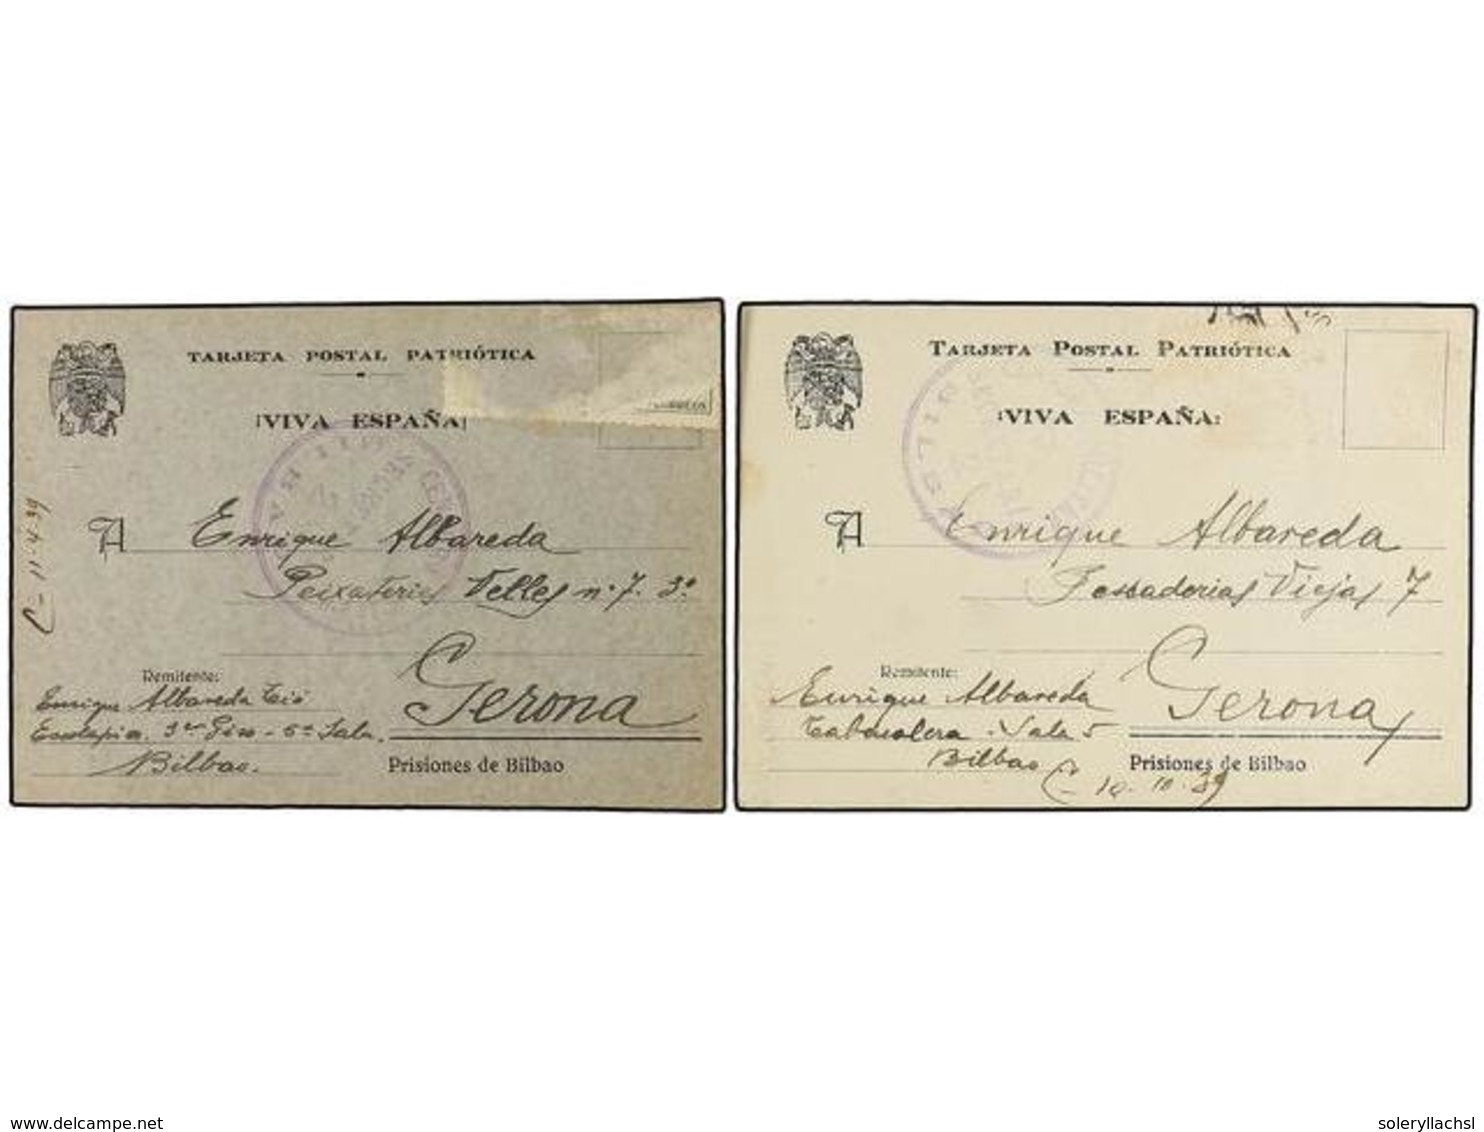 TARJETA POSTAL PATRIÓTICA
¡VIVA ESPAÑA!
C- 11-4-39
A Enrique Albareda
Peixateries Velles nº 7. 3º
Gerona
Remitente:
Enrique Albareda Tió
Escolapios. 3er Piso - 6ª Sala.
Bilbao.
Prisiones de Bilbao
TARJETA POSTAL PATRIÓTICA
¡VIVA ESPAÑA!
A Enrique Albareda
Viejas 7
Gerona
Remitente:
Enrique Albareda
Tabacalera - Sala 5
Bilbao
Prisiones de Bilbao
10-39
delcampe.net
soleryllachsl